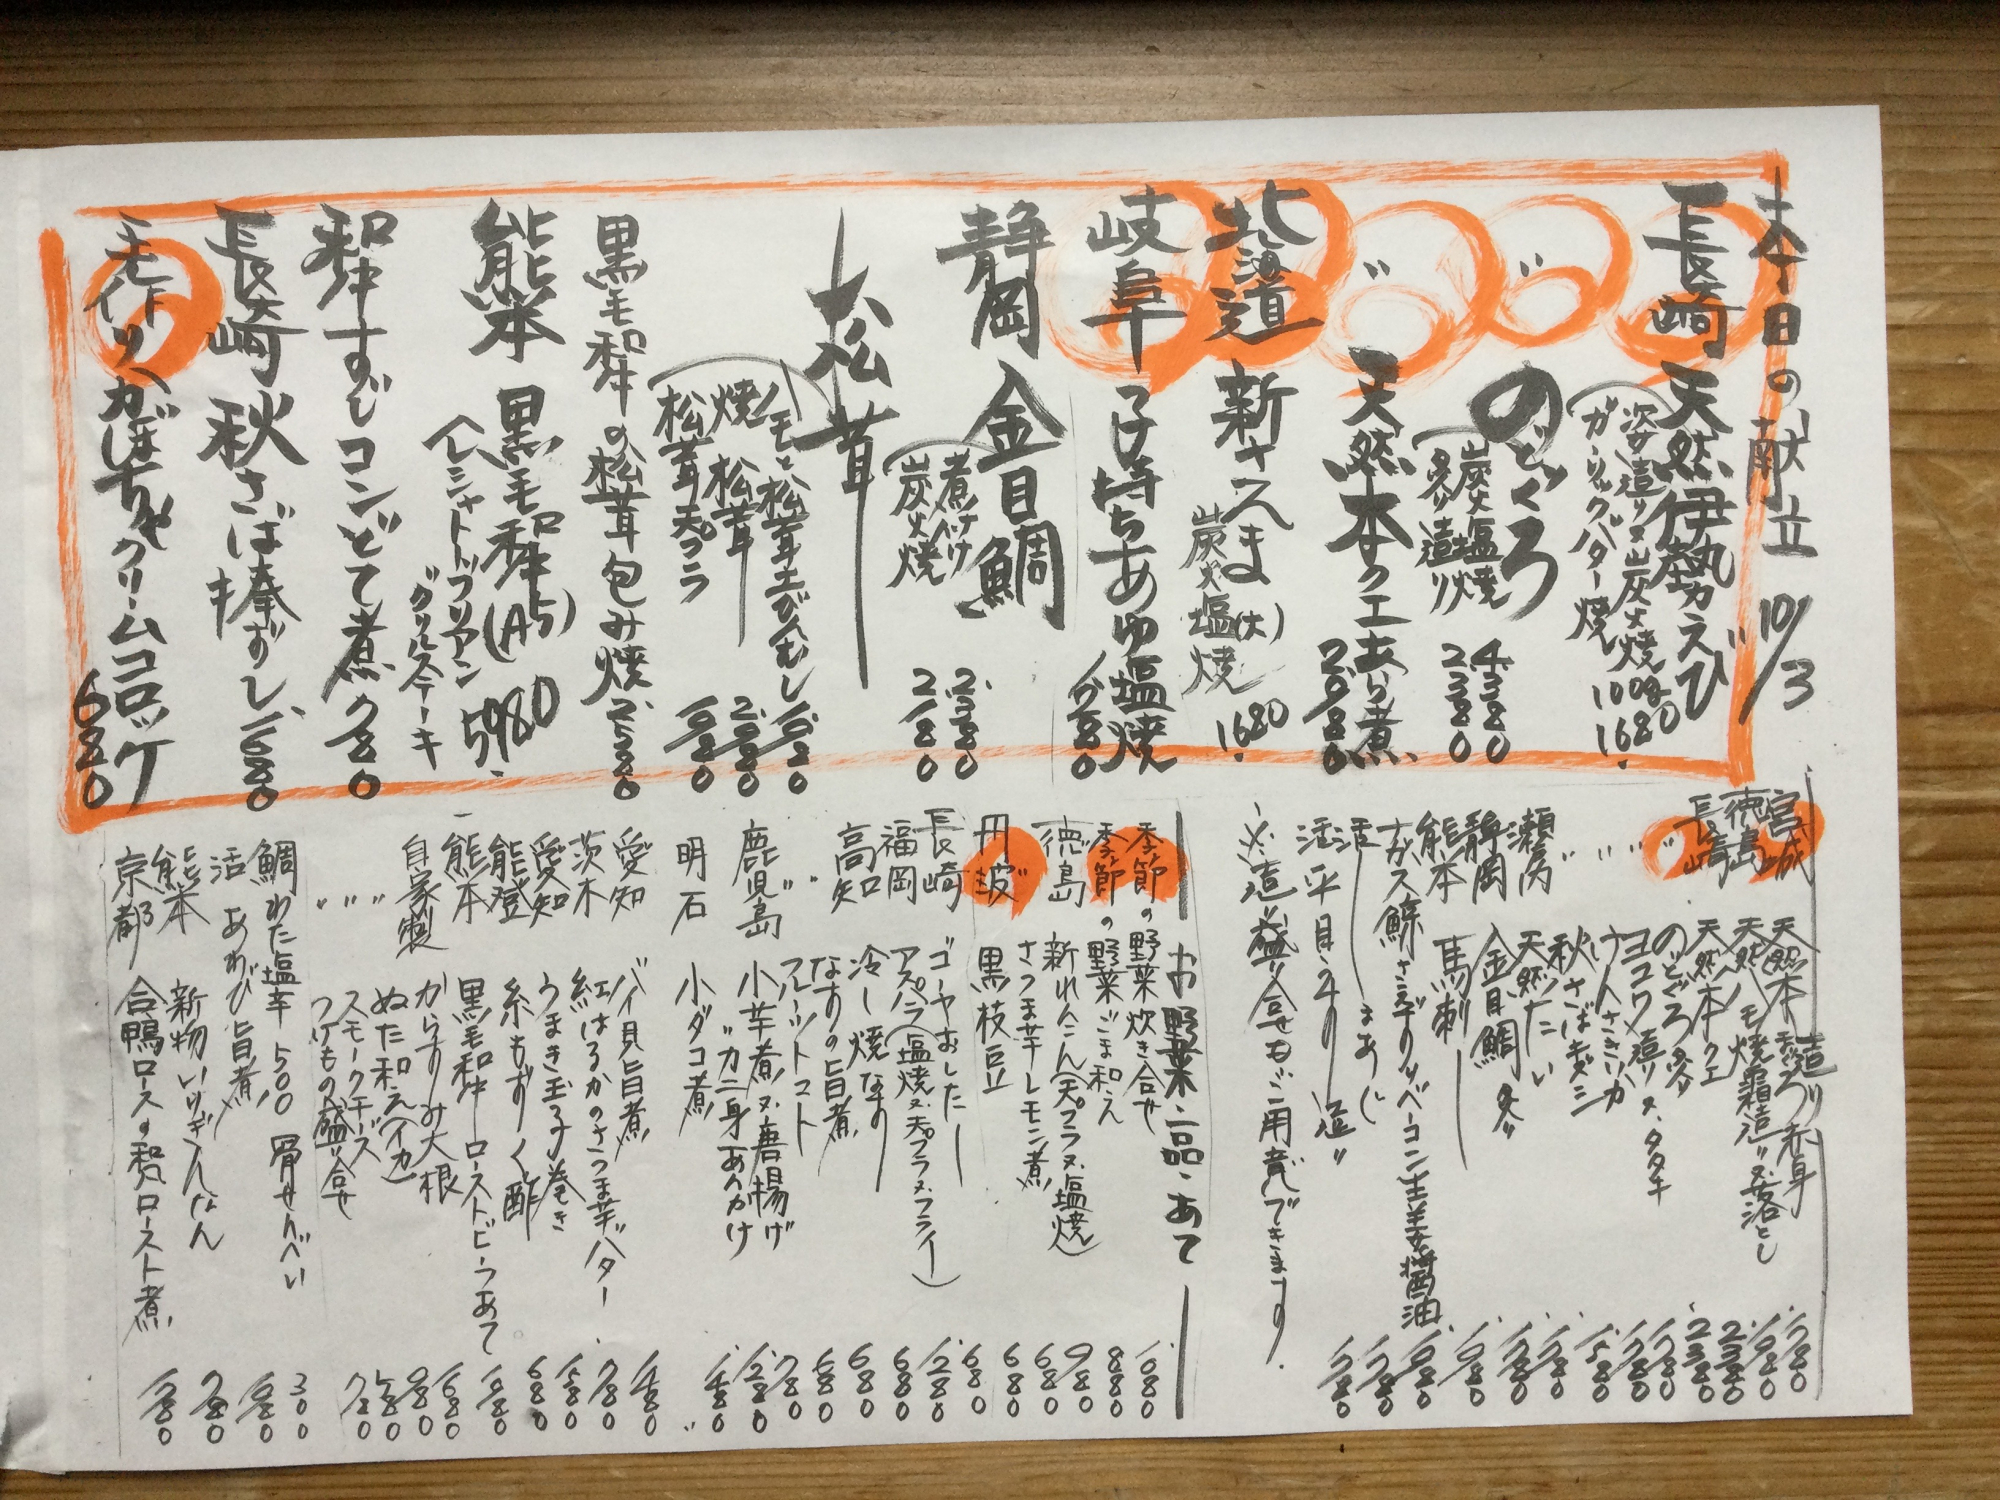 本日の献立 10/3
長崎 天然伊勢えび
姿造り又炭火焼
ガーリックバター焼 1680
〃 のどぐろ
炭火塩焼 4380
炙り造り 2380
〃 天然本クエあら煮 2080
北海道 新さんま(大)
炭火塩焼 1680
岐阜 子持ちあゆ塩焼
静岡 金目鯛
煮付け 2380
炭火焼 2180
松茸
ハモと松茸土びんむし
焼松茸 2080
松茸天プラ
黒毛和牛の松茸包み焼 2580
熊本 黒毛和牛(A5) 5980
シャトーブリアン
グリルステーキ
和牛すじコンどて煮 780
長崎 秋さば棒ずし 1680
かぼちゃクリームコロッケ 680
宮城
徳島
長崎
造り
天然ハモ焼霜造り又落とし
天然本クエ 2380
のどぐろ炙り 2380
ヨコワ造り又タタキ
けんさきいか
秋さばキズシ 1580
天然たい
瀬戸内
静岡 金目鯛炙り
熊本 馬刺
さえずりベーコン生姜醤油
活 まあじ
活 平目うすり造り
※造り盛り合せもご用意できます
お野菜・一品・あて
季節の野菜炊き合せ 1080
季節の野菜ごま和え 880
徳島 新れんこん(天プラ又塩焼) 980
さつま芋レモン煮 680
丹波 黒枝豆 680
長崎 ゴーヤおしたし 680
福岡 アスパラ(塩焼又天プラ又フライ) 1280
高知 冷し焼なす 680
〃 なすの旨煮 680
フルーツトマト
鹿児島 小芋煮又唐揚げ 780
〃 カニ身あんかけ 1280
明石 小ダコ煮
愛知 バイ貝旨煮
茨木 紅はるかのさつま芋バター 780
愛知 うまき玉子巻き 1580
能登 糸もずく酢 680
熊本 黒毛和牛ローストビーフあて
自家製 からすみ大根
〃 ぬた和え(イカ)
〃 スモークチーズ
〃 つけもの盛り合せ
鯛わた塩辛 500 骨せんべい 300
活あわび旨煮
熊本 新物いりぎんなん 780
京都 合鴨ロースの和風ロースト煮